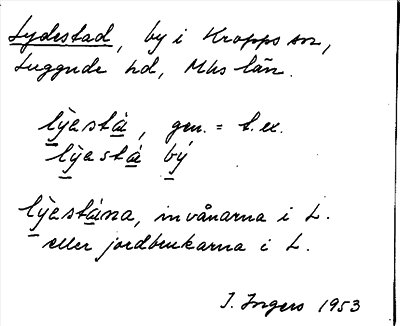 Lydestad, by i Kropps sn,
Luggude hd, Mhs län.
lỳestȧ, gen. = t.ex.
lỳestȧ bý
lỳestȧna, invånarna i L.
eller jordbrukarna i L.
I. Ingers 1953